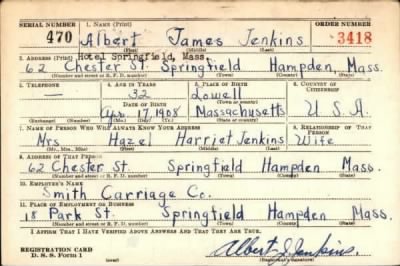 SERIAL NUMBER 1. NAME (Print) ORDER NUMBER
470 Albert James Jenkins 3418
(First) (Middle) (Last)
2. ADDRESS (Print) Hotel Springfield, Mass.
62 Chester St. Springfield Hampden, Mass.
(Number and street or R. F. D. number) (Town) (County) (State)
3. TELEPHONE 4. AGE IN YEARS 5. PLACE OF BIRTH 6. COUNTRY OF CITIZENSHIP
— 32 Lowell
DATE OF BIRTH (Town or county)
Apr. 17 1908 Massachusetts U.S.A.
(Mo.) (Day) (Yr.) (State or country)
7. NAME OF PERSON WHO WILL ALWAYS KNOW YOUR ADDRESS 8. RELATIONSHIP OF THAT PERSON
Mrs. Hazel Harriet Jenkins Wife
(Mr., Mrs., Miss) (First) (Middle) (Last)
9. ADDRESS OF THAT PERSON
62 Chester St. Springfield Hampden Mass.
(Number and street or R. F. D. number) (Town) (County) (State)
10. EMPLOYER'S NAME
Smith Carriage Co.
11. PLACE OF EMPLOYMENT OR BUSINESS
18 Park St. Springfield Hampden Mass.
(Number and street or R. F. D. number) (Town) (County) (State)
I AFFIRM THAT I HAVE VERIFIED ABOVE ANSWERS AND THAT THEY ARE TRUE.
REGISTRATION CARD
D. S. S. FORM 1 Albert J. Jenkins.